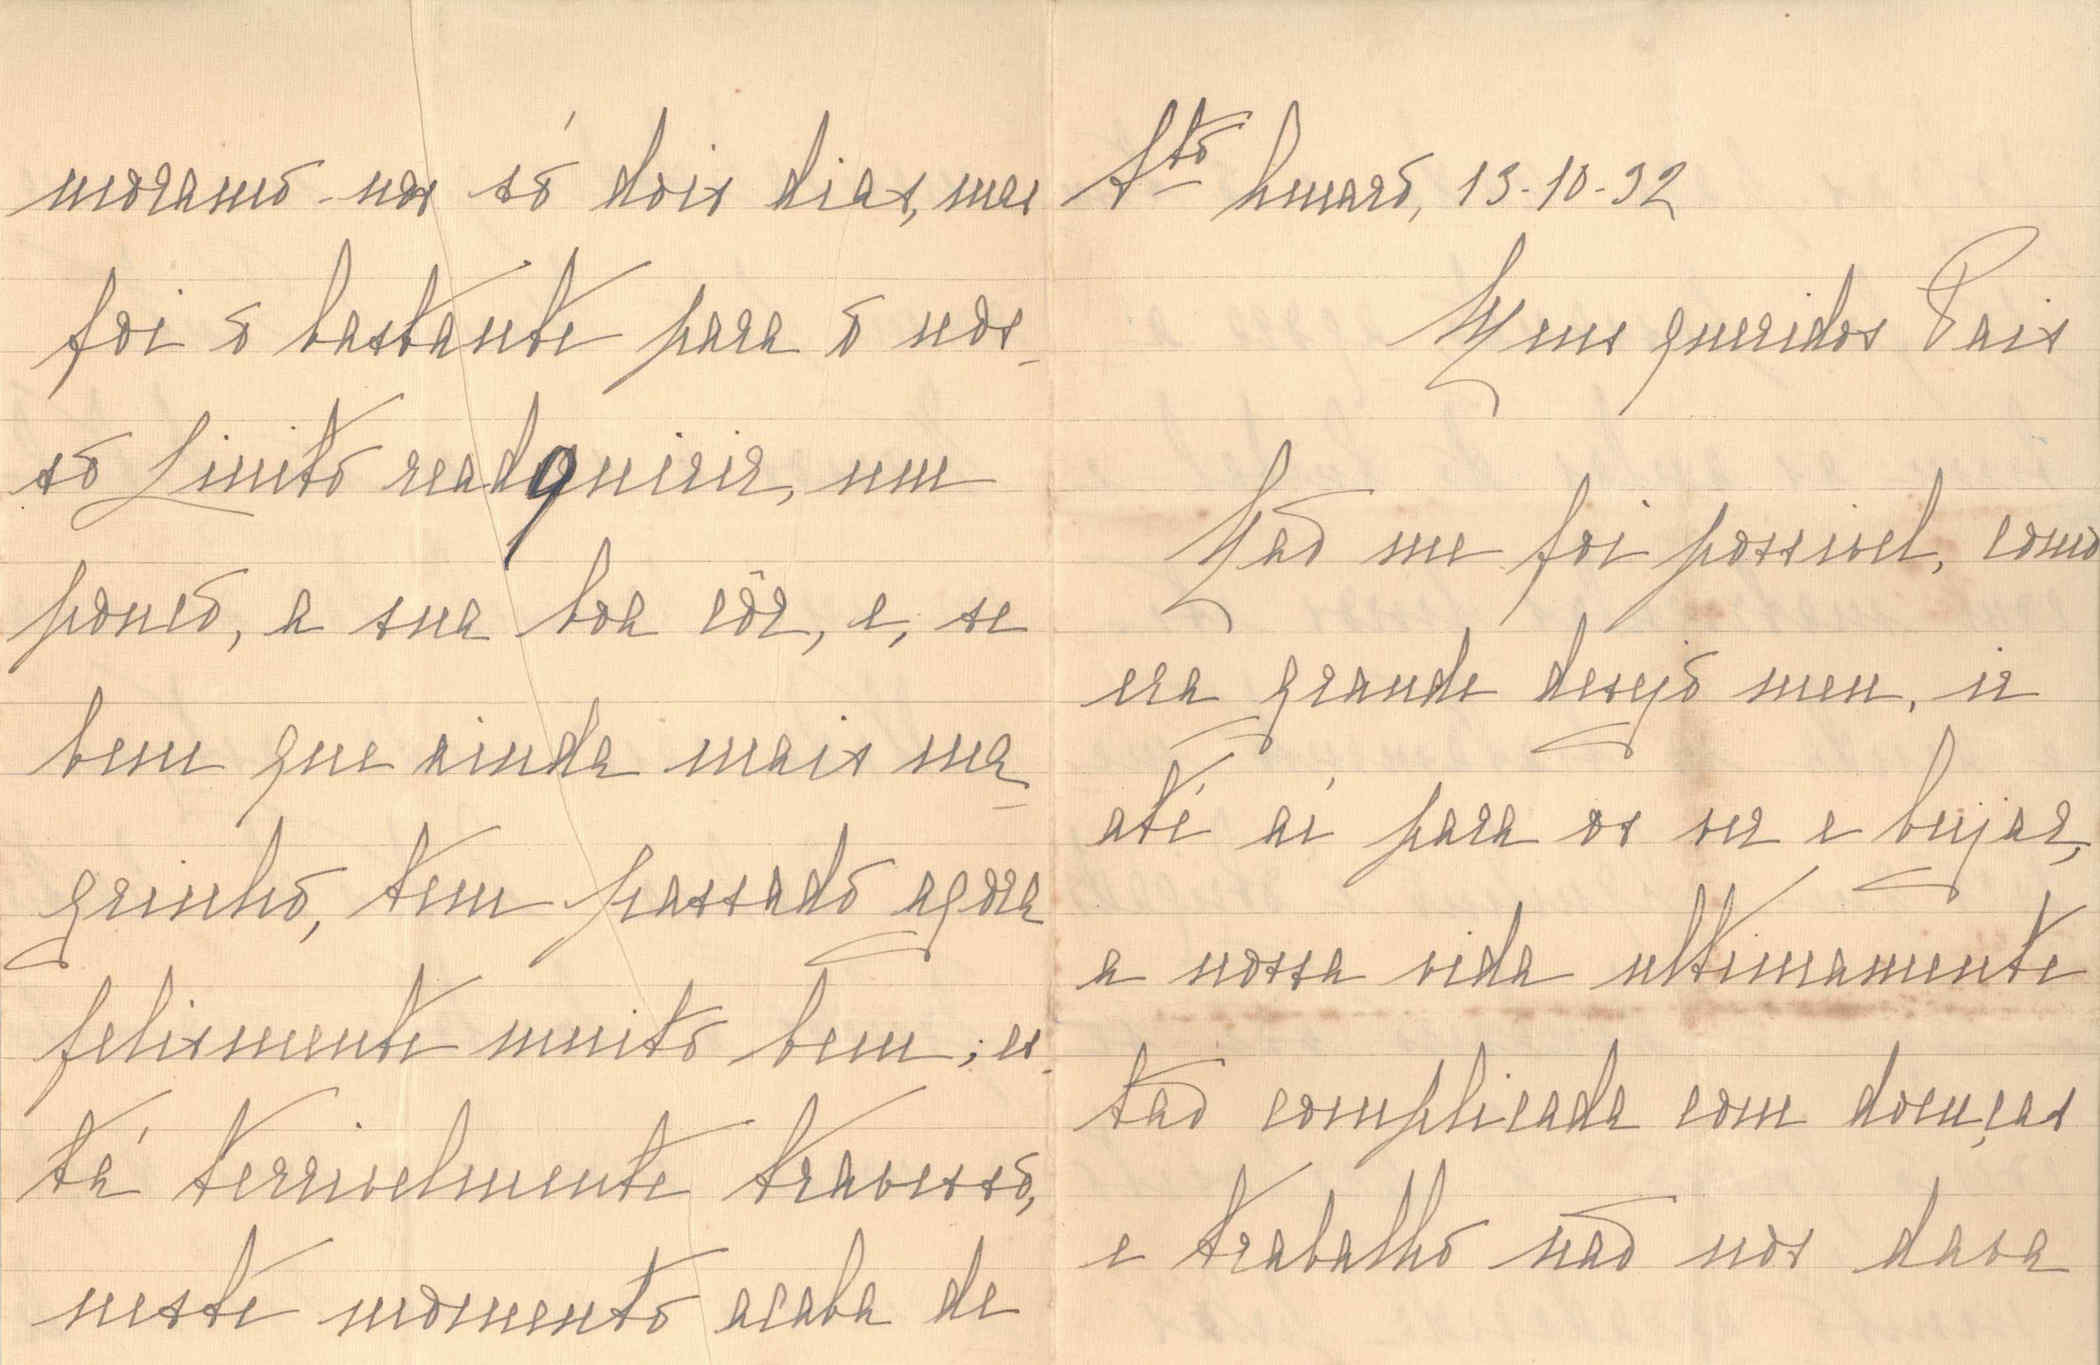 Stº Amaro, 13-10-32
Meus queridos Pais
Não me foi possivel, como
era grande desejo meu, ir
até aí para os ver e beijar,
a nossa vida ultimamente
tão complicada com doenças
e trabalho não nos dava
moramo-nos só dois dias, mas
foi o bastante para o nos-
so Linito readquirir, um
pouco, a sua boa côr, e, se
bem que ainda mais ma-
grinho, tem passado agora
felismente muito bem; es-
tá terrivelmente travesso,
neste momento acaba de